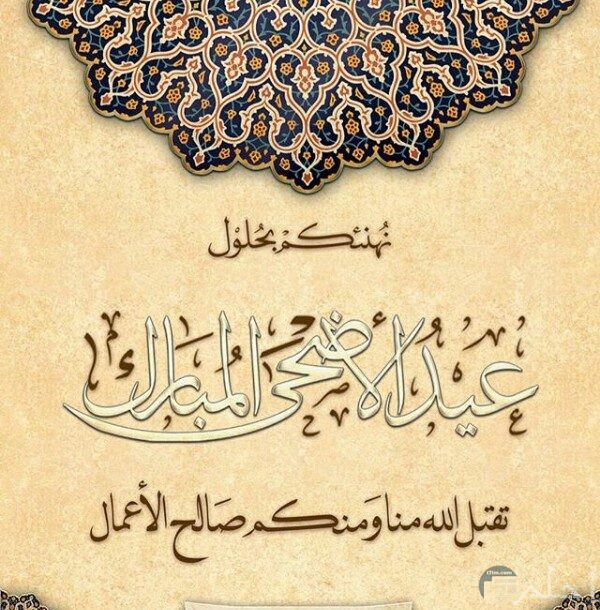 نُهنئكم بحُلوْل
عيدُ الأضحى المُبارك
تقبل الله منا وَمنكم صَالح الأعمال